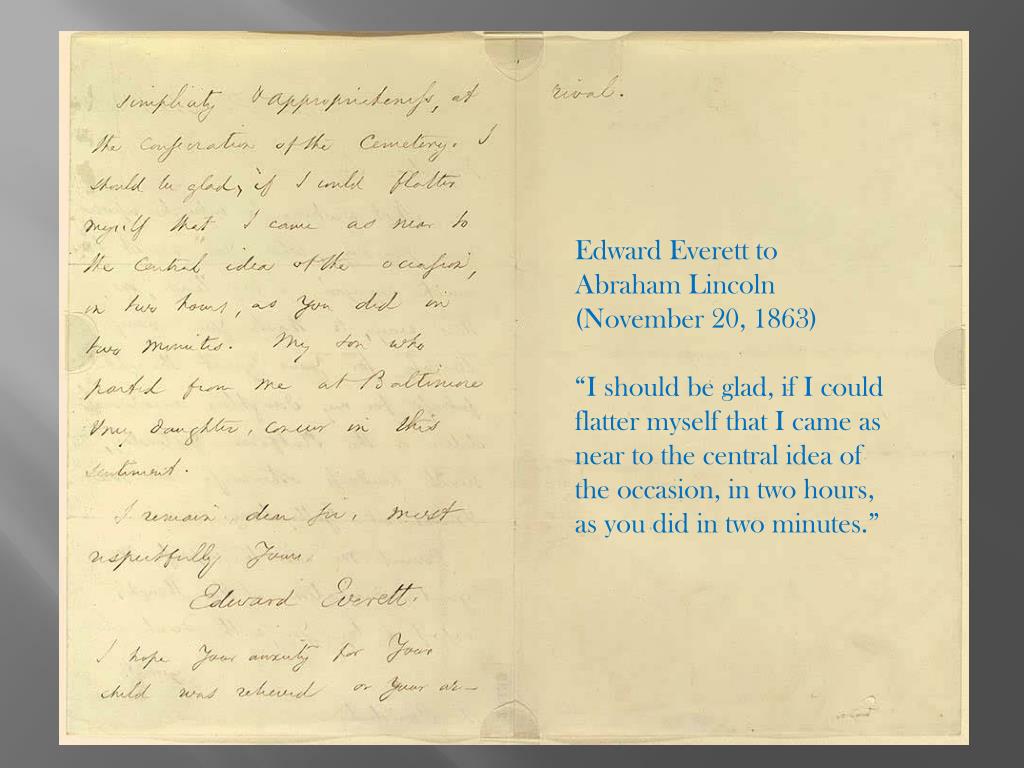 simplicity & appropriateness, at
the consecration of the Cemetery. I
should be glad, if I could flatter
myself that I came as near to
the central idea of the occasion,
in two hours, as you did in
two minutes. My son who
parted from me at Baltimore
& my daughter, concur in this
sentiment.
I remain, dear Sir, most
respectfully Yours,
Edward Everett.
I hope your anxiety for your
child was relieved on your ar-
rival.
Edward Everett to
Abraham Lincoln
(November 20, 1863)
“I should be glad, if I could
flatter myself that I came as
near to the central idea of
the occasion, in two hours,
as you did in two minutes.”